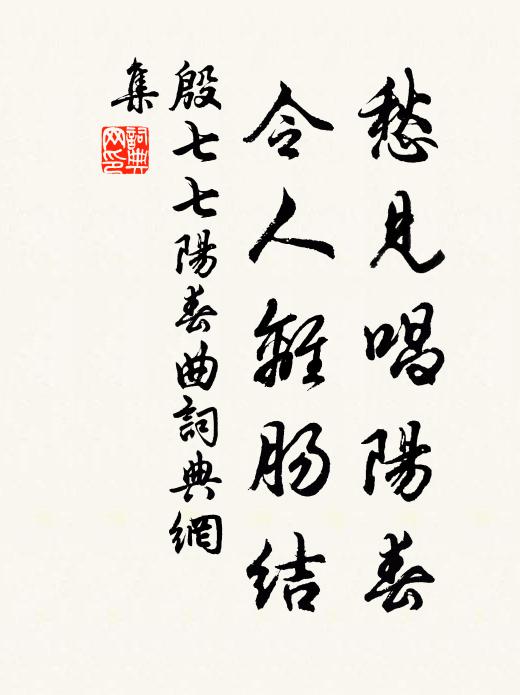 愁見唱陽春
令人離腸結
殷七七陽春曲詞典網
集
詞典
网印